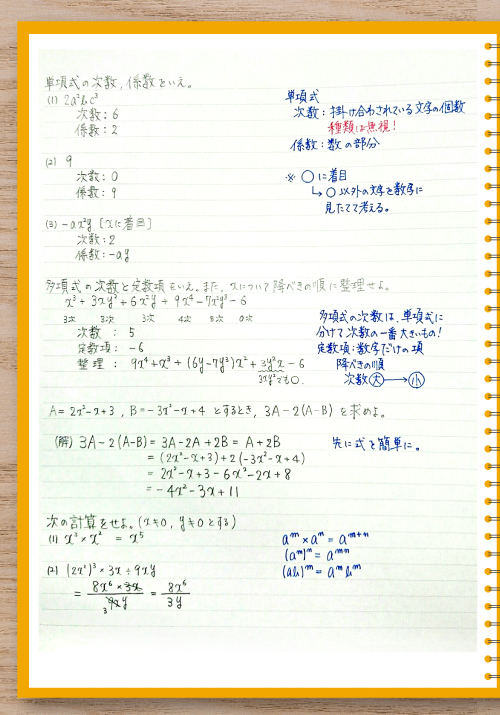 単項式の次数、係数をいえ。
(1) 2a²bc³
次数：6
係数：2
(2) 9
次数：0
係数：9
(3) -ax²y [xに着目]
次数：2
係数：-ay
単項式
次数：掛け合わされている文字の個数
種類は無視！
係数：数の部分
※ ○に着目
↳ ○以外の文字を数字に
見たてて考える。
多項式の次数と定数項をいえ。また、xについて降べきの順に整理せよ。
x³+3xy²+6x²y+9x⁴-7x²y³-6
3次 3次 3次 4次 5次 0次
次数：5
定数項：-6
整理：9x⁴+x³+(6y-7y³)x²+3y²x-6
3xy²でも○.
多項式の次数は、単項式に
分けて次数の一番大きいもの！
定数項：数字だけの項
降べきの順
次数 大 → 小
A=2x²-x+3, B=-3x²-x+4 とするとき、3A-2(A-B) を求めよ。
(解) 3A-2(A-B)=3A-2A+2B=A+2B
=(2x²-x+3)+2(-3x²-x+4)
=2x²-x+3-6x²-2x+8
=-4x²-3x+11
先に式を簡単に。
次の計算をせよ。(x≠0, y≠0とする)
(1) x³×x²=x⁵
(2) (2x²)³×3x÷9xy
=8x⁶×3x/9xy=8x⁶/3y
3
aᵐ×aⁿ=aᵐ⁺ⁿ
(aᵐ)ⁿ=aᵐⁿ
(ab)ᵐ=aᵐbᵐ